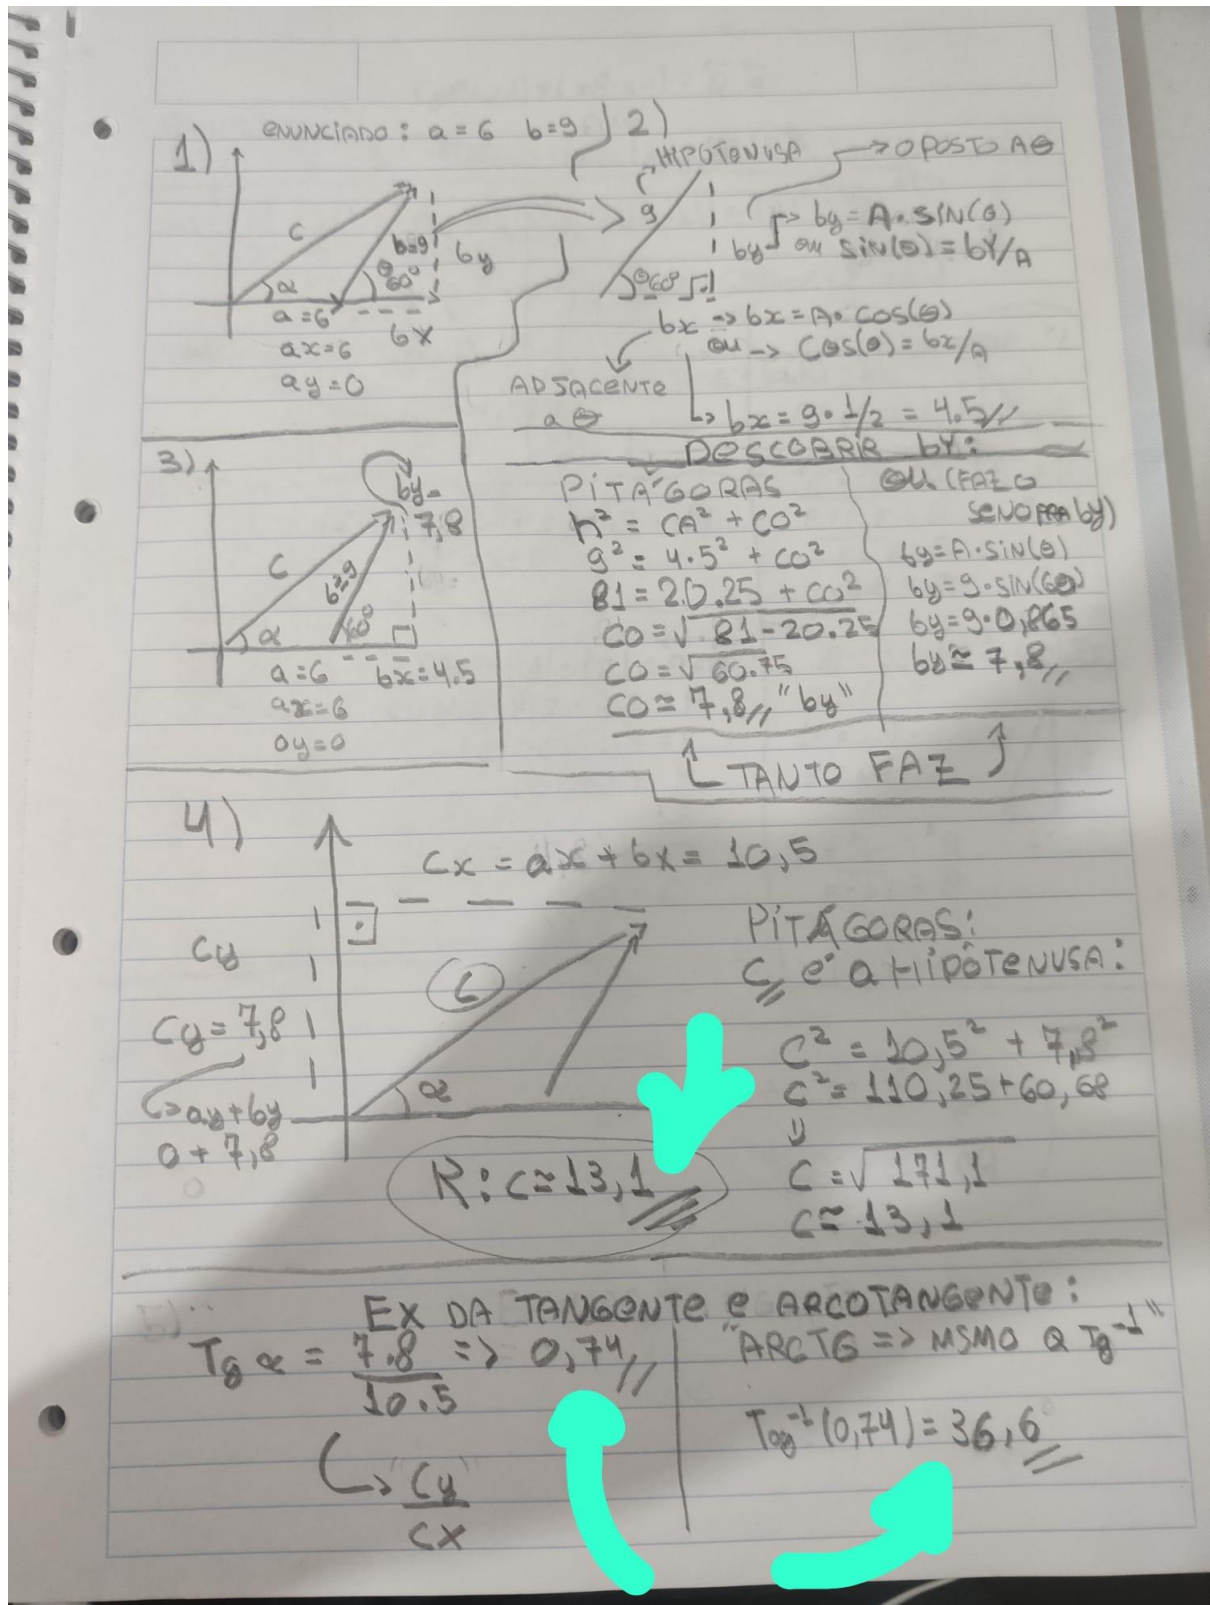 1) enunciado: a = 6 b=9
c
b=9
by
α
θ
60°
a=6
bx
ax=6
ay=0
2)
HIPOTENUSA
→ OPOSTO A θ
9
by → by = A. SIN(θ)
ou SIN(θ) = bY/A
θ60°
bx → bx = A. COS(θ)
ou → COS(θ) = bx/A
ADJACENTE
a θ
↳ bx = 9. 1/2 = 4.5//
DESCOBRIR bY:
PITÁGORAS
h² = CA² + CO²
9² = 4.5² + CO²
81 = 20.25 + CO²
CO = √81-20.25
CO = √60.75
CO ≃ 7,8// "by"
OU (FAZ O
SENO PRA by)
by = A. SIN(θ)
by = 9. SIN(60)
by = 9.0,865
by ≃ 7,8//
TANTO FAZ
3)
by=
7,8
c
b=9
α
60°
a=6 bx=4.5
ax=6
ay=0
4)
Cx = ax + bx = 10,5
Cy
Cy = 7,8
↳ ay+by
0 + 7,8
C
α
PITÁGORAS:
C// é a HIPÔTENUSA:
C² = 10,5² + 7,8²
C² = 110,25+60,68
C = √171,1
C ≃ 13,1
R: C ≃ 13,1
EX DA TANGENTE e ARCOTANGENTE:
Tg α = 7.8/10.5 => 0,74//
↳ "Cy"/CX
"ARCTG => MSMO Q Tg⁻¹"
Tag⁻¹(0,74) = 36,6